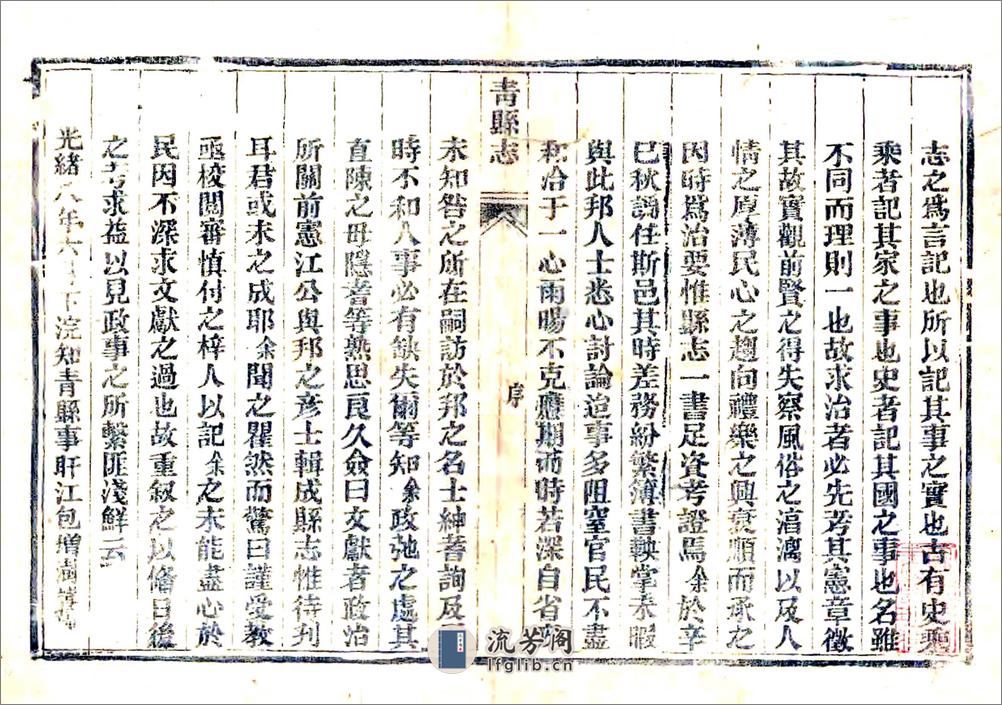 志之爲言記也所以記其事之實也古有史乘
乘者記其家之事也史者記其國之事也名雖
不同而理則一也故求治者必先考其憲章徵
其故實觀前賢之得失察風俗之湻漓以及人
情之厚薄民心之趨向禮樂之興衰順而承之
因時爲治要惟縣志一書足資考證焉余於辛
巳秋調任斯邑其時差務紛繁簿書鞅掌未暇
與此邦人士悉心討論迨事多阻窒官民不盡
和洽于一心雨暘不克應期而時若深自省
青縣志
序
未知咎之所在嗣訪於邦之名士紳耆詢及
時不和人事必有缺失爾等知余政弛之處其
直陳之毋隱耆等熟思良久僉曰文獻者政治
所關前憲江公與邦之彥士輯成縣志惟待刋
耳君或未之成耶余聞之瞿然而驚曰謹受教
亟校閱審慎付之梓人以記余之未能盡心於
民因不深求文獻之過也故重叙之以俻日後
之考求益以見政事之所繫匪淺鮮云
光緒八年六月下浣知青縣事盱江包增澍
流芳阁
lfglib.cn